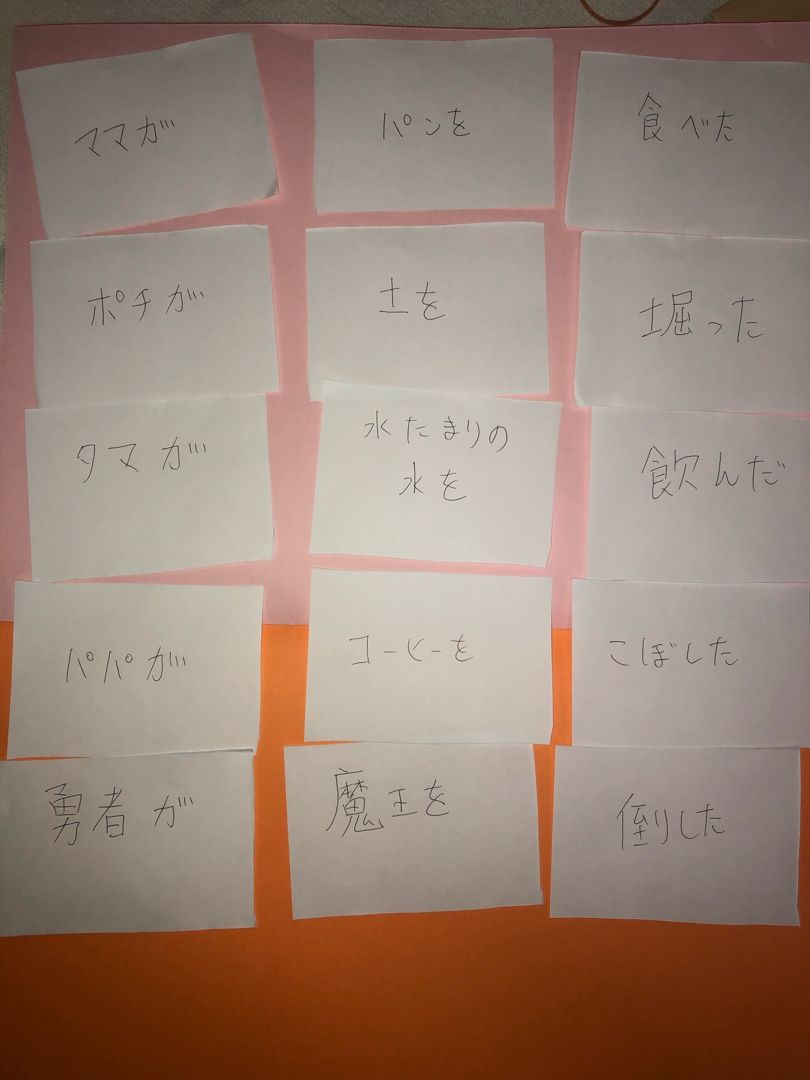 ママが パンを 食べた
ポチが 土を 堀った
タマが 水たまりの 飲んだ
水を
パパが コーヒーを こぼした
勇者が 魔王を 倒した